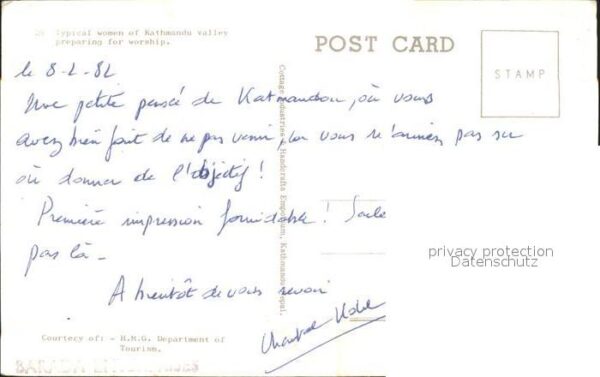 28 Typical women of Kathmandu valley
preparing for worship.
POST CARD
STAMP
le 8-2-82
Une petite pensé de Katmandou, où vous
avez bien fait de ne pas venir, car vous n'auriez pas su
où donner de l'objectif !
Première impression formidable !
pas là -
A bientôt de vous revoir
Cottage Industries & Handicrafts Emporium, Kathmandu Nepal.
privacy protection
Datenschutz
Courtesy of: - H.M.G. Department of
Tourism.